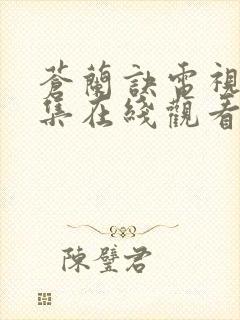 蒼蘭訣電視
集在綫觀看
陳璧君